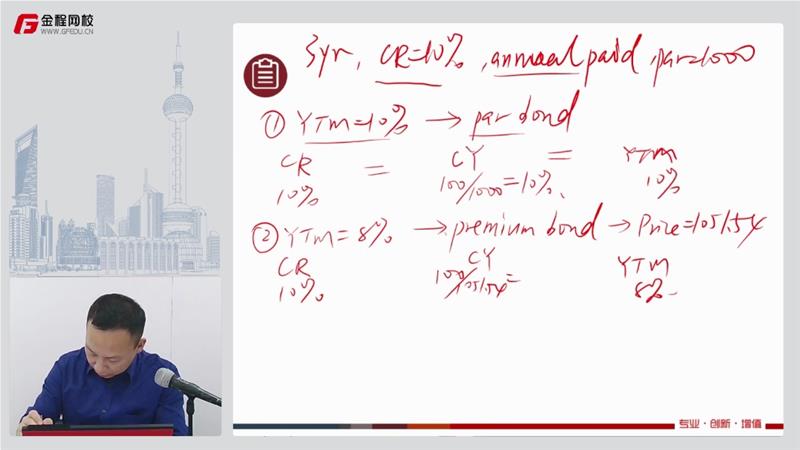 金程网校
WWW.GFEDU.CN
3yr, CR=10%, annual paid, par=1000
① YTM=10% → par bond
CR = CY = YTM
10% 100/1000=10%. 10%
② YTM=8% → premium bond → Price=1051.54
CR CY YTM
10% 100/1051.54= 8%
专业·创新·增值